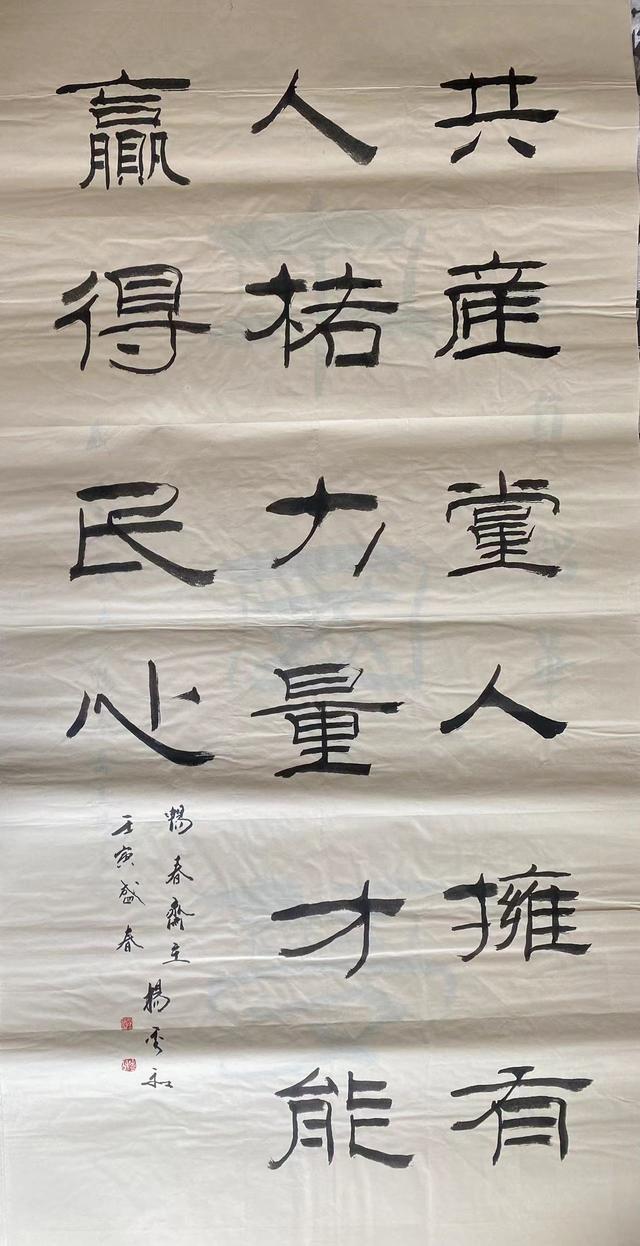 共產黨人擁有
人格力量才能
贏得民心
暢春齋主楊雲和
壬寅盛春